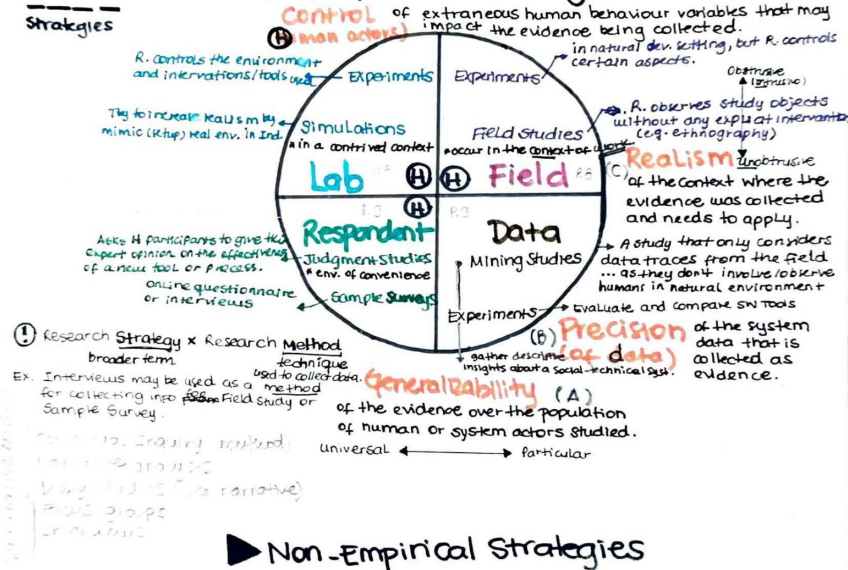 Strategies
Control of extraneous human behaviour variables that may
(Human actors) impact the evidence being collected.
R. controls the environment
and intervations/tools used
Experiments
Experiments
in natural dev. setting, but R. controls
certain aspects.
Obtrusive
(intrusivo)
Try to increase realism by
mimic (setup) real env. in Ind.
Simulations
* in a contrived context
Field Studies
* occur in the context of work
R. observes study objects
without any explicit intervantion
(e.g. ethnography)
Unobtrusive
Lab H
H Field
(C) Realism
of the context where the
evidence was collected
and needs to apply.
H
Respondent
Judgment Studies
* env. of convenience
Sample Surveys
Asks H participants to give their
expert opinion on the effectiveness
of a new tool or process.
online questionnaire
or interviews
Data
Mining Studies
Experiments
A study that only considers
data traces from the field
... as they don't involve/observe
humans in natural environment
Evaluate and compare SW Tools
(B) Precision of the system
(of data) data that is
collected as
evidence.
gather descrime
insights about a social-technical syst.
! Research Strategy x Research Method
broader term
technique
used to collect data.
Ex. Interviews may be used as a method
for collecting info Field Study or
Sample Survey.
Generalizability (A)
of the evidence over the population
of human or system actors studied.
universal particular
Non-Empirical Strategies